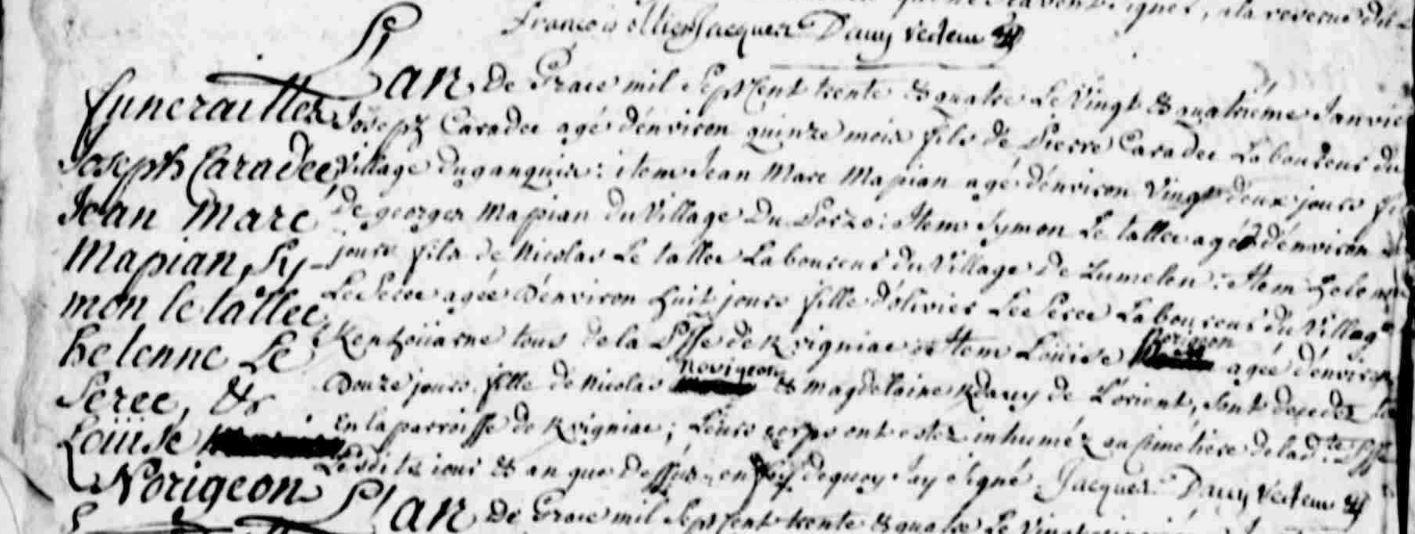 François Jacques Davy recteur
funerailles
Joseph Caradec
Jean Marc
Mapian, Sy-
mon le tallec
helenne Le
Serec, &
Loüise
Norigeon
L'an de Grace mil Sept Cent trente & quatre Le Vingt & quatriéme Janvie
Joseph Caradec agé d'environ quinze mois fils de Pierre Caradec Laboureur du
Village du ganquis: item Jean Marc Mapian agé d'environ Vingt deux jours fi
de georges Mapian du Village Du Porzo: Item Symon Le tallec agé d'environ
jours fils de Nicolas Le tallec Laboureur du Village de Lumelen: Item helenne
Le Serec agée d'environ huit jours fille d'olivier Le Serec Laboureur du Village
tous de la de Kvigniac: Item Louise Norigeon agée d'environ
Douze jours fille de Nicolas Norigeon & Magdelaine Kdavy de L'orient, sont decedez
En la parroisse de Kvigniac; Leurs corps ont estez inhuméz au simetiere de lad.te
Lesdits jours & an que dessus en foy dequoy J'ay signé Jacques Davy recteur
L'an de Grace mil Sept Cent trente & quatre Le